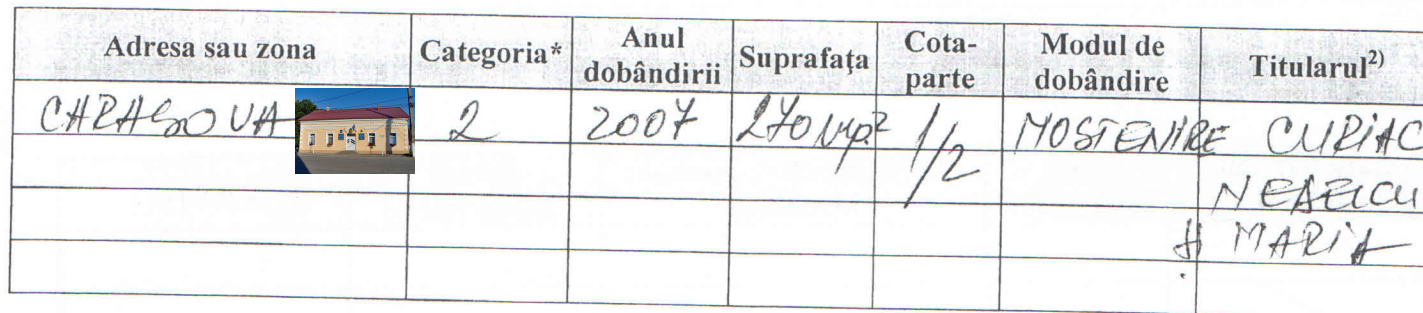 Adresa sau zona Categoria* Anul dobândirii Suprafața Cota-parte Modul de dobândire Titularul2)
CARASOVA 2 2007 270 mp2 1/2 MOSTENIRE CURIAC
NEDELCU
și MARIA